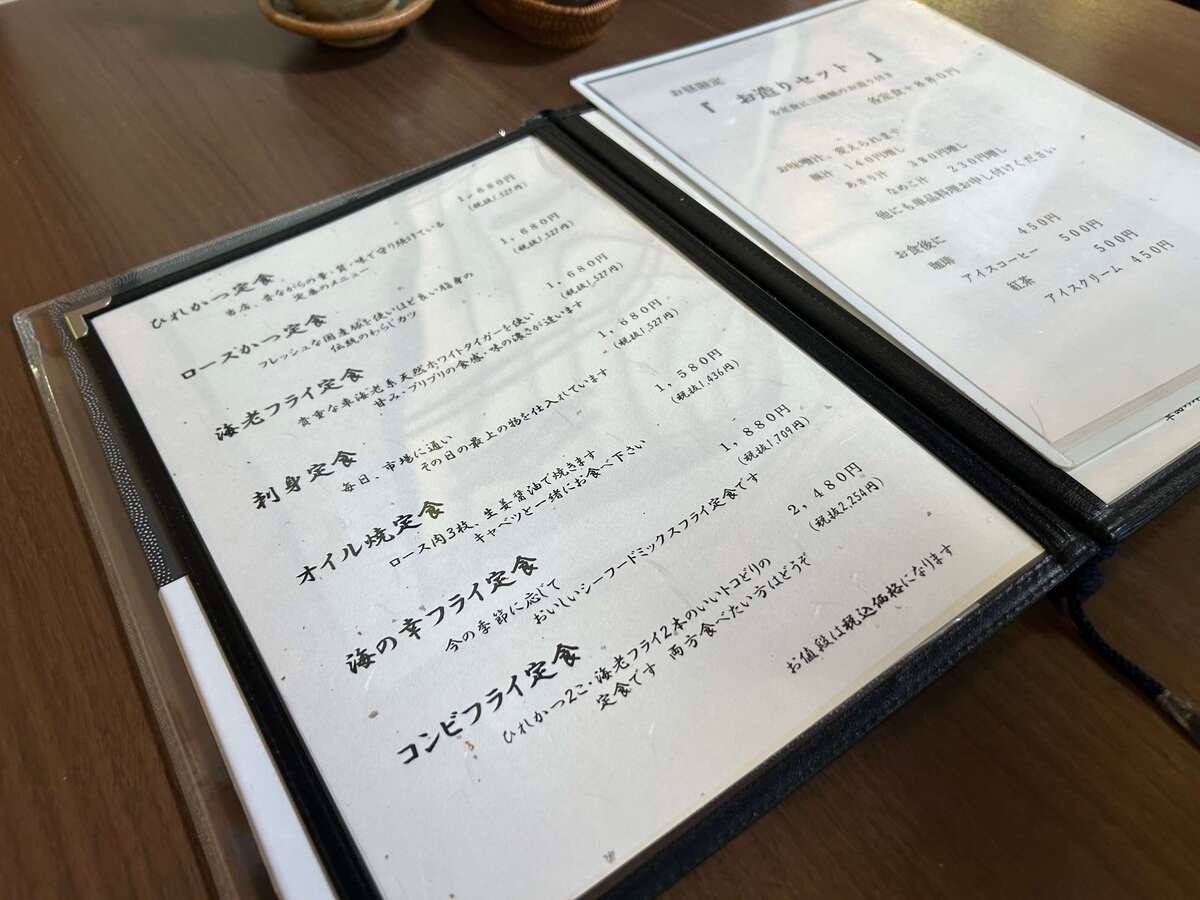 ひれかつ定食
1,680円
(税抜1,527円)
当店、昔ながらの事・質・味で守り続けている
定番のメニュー
ロースかつ定食
1,680円
(税抜1,527円)
フレッシュな国産豚を使いほど良い脂身の
伝統のとんかつ
海老フライ定食
1,680円
(税抜1,527円)
貴重な車海老系天然ホワイトタイガーを使い
甘み・プリプリの食感・味の濃さが違います
刺身定食
1,680円
(税抜1,527円)
毎日、市場に通い
その日の最上の物を仕入れています
オイル焼定食
1,580円
(税抜1,436円)
ロース肉3枚、生姜醤油で焼きます
キャベツと一緒にお食べ下さい
海の幸フライ定食
1,880円
(税抜1,709円)
今の季節に応じて
おいしいシーフードミックスフライ定食です
コンビフライ定食
2,480円
(税抜2,254円)
ひれかつ2こ・海老フライ2本のいいトコどりの
定食です 両方食べたい方はどうぞ
お値段は税込価格になります
お昼限定
『 お造りセット 』
各定食に三種類のお造り付き
各定食+880円
お味噌汁、変えられます
豚汁 140円増し
あさり汁 380円増し
なめこ汁 230円増し
他にも単品料理お申し付けください
お食後に
珈琲 450円
アイスコーヒー 500円
紅茶 500円
アイスクリーム 450円